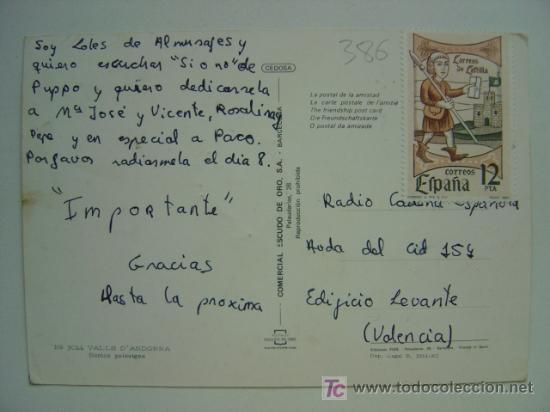 Soy Loles de Almusafes y
quiero escuchar "Si o no" de
Puppo y quiero dedicarsela
a Mª José y Vicente, Rosalina
Pepe y en especial a Paco.
Porfavor radiarmela el día 8.
"Importante"
Gracias
Hasta la proxima
386
CEDOSA
La postal de la amistad
La carte postale de l'amitié
The friendship post card
Die Freundschaftskarte
O postal da amizade
COMERCIAL ESCUDO DE ORO, S.A. - BARCELONA
Palaudarias, 26
Reproducción prohibida
Correos
de Castilla
CORREOS
España
12
PTA
Radio Cadena Española
Avda del Cid 154
Edificio Levante
(Valencia)
VALLS D'ANDORRA
todocoleccion
www.todocoleccion.net